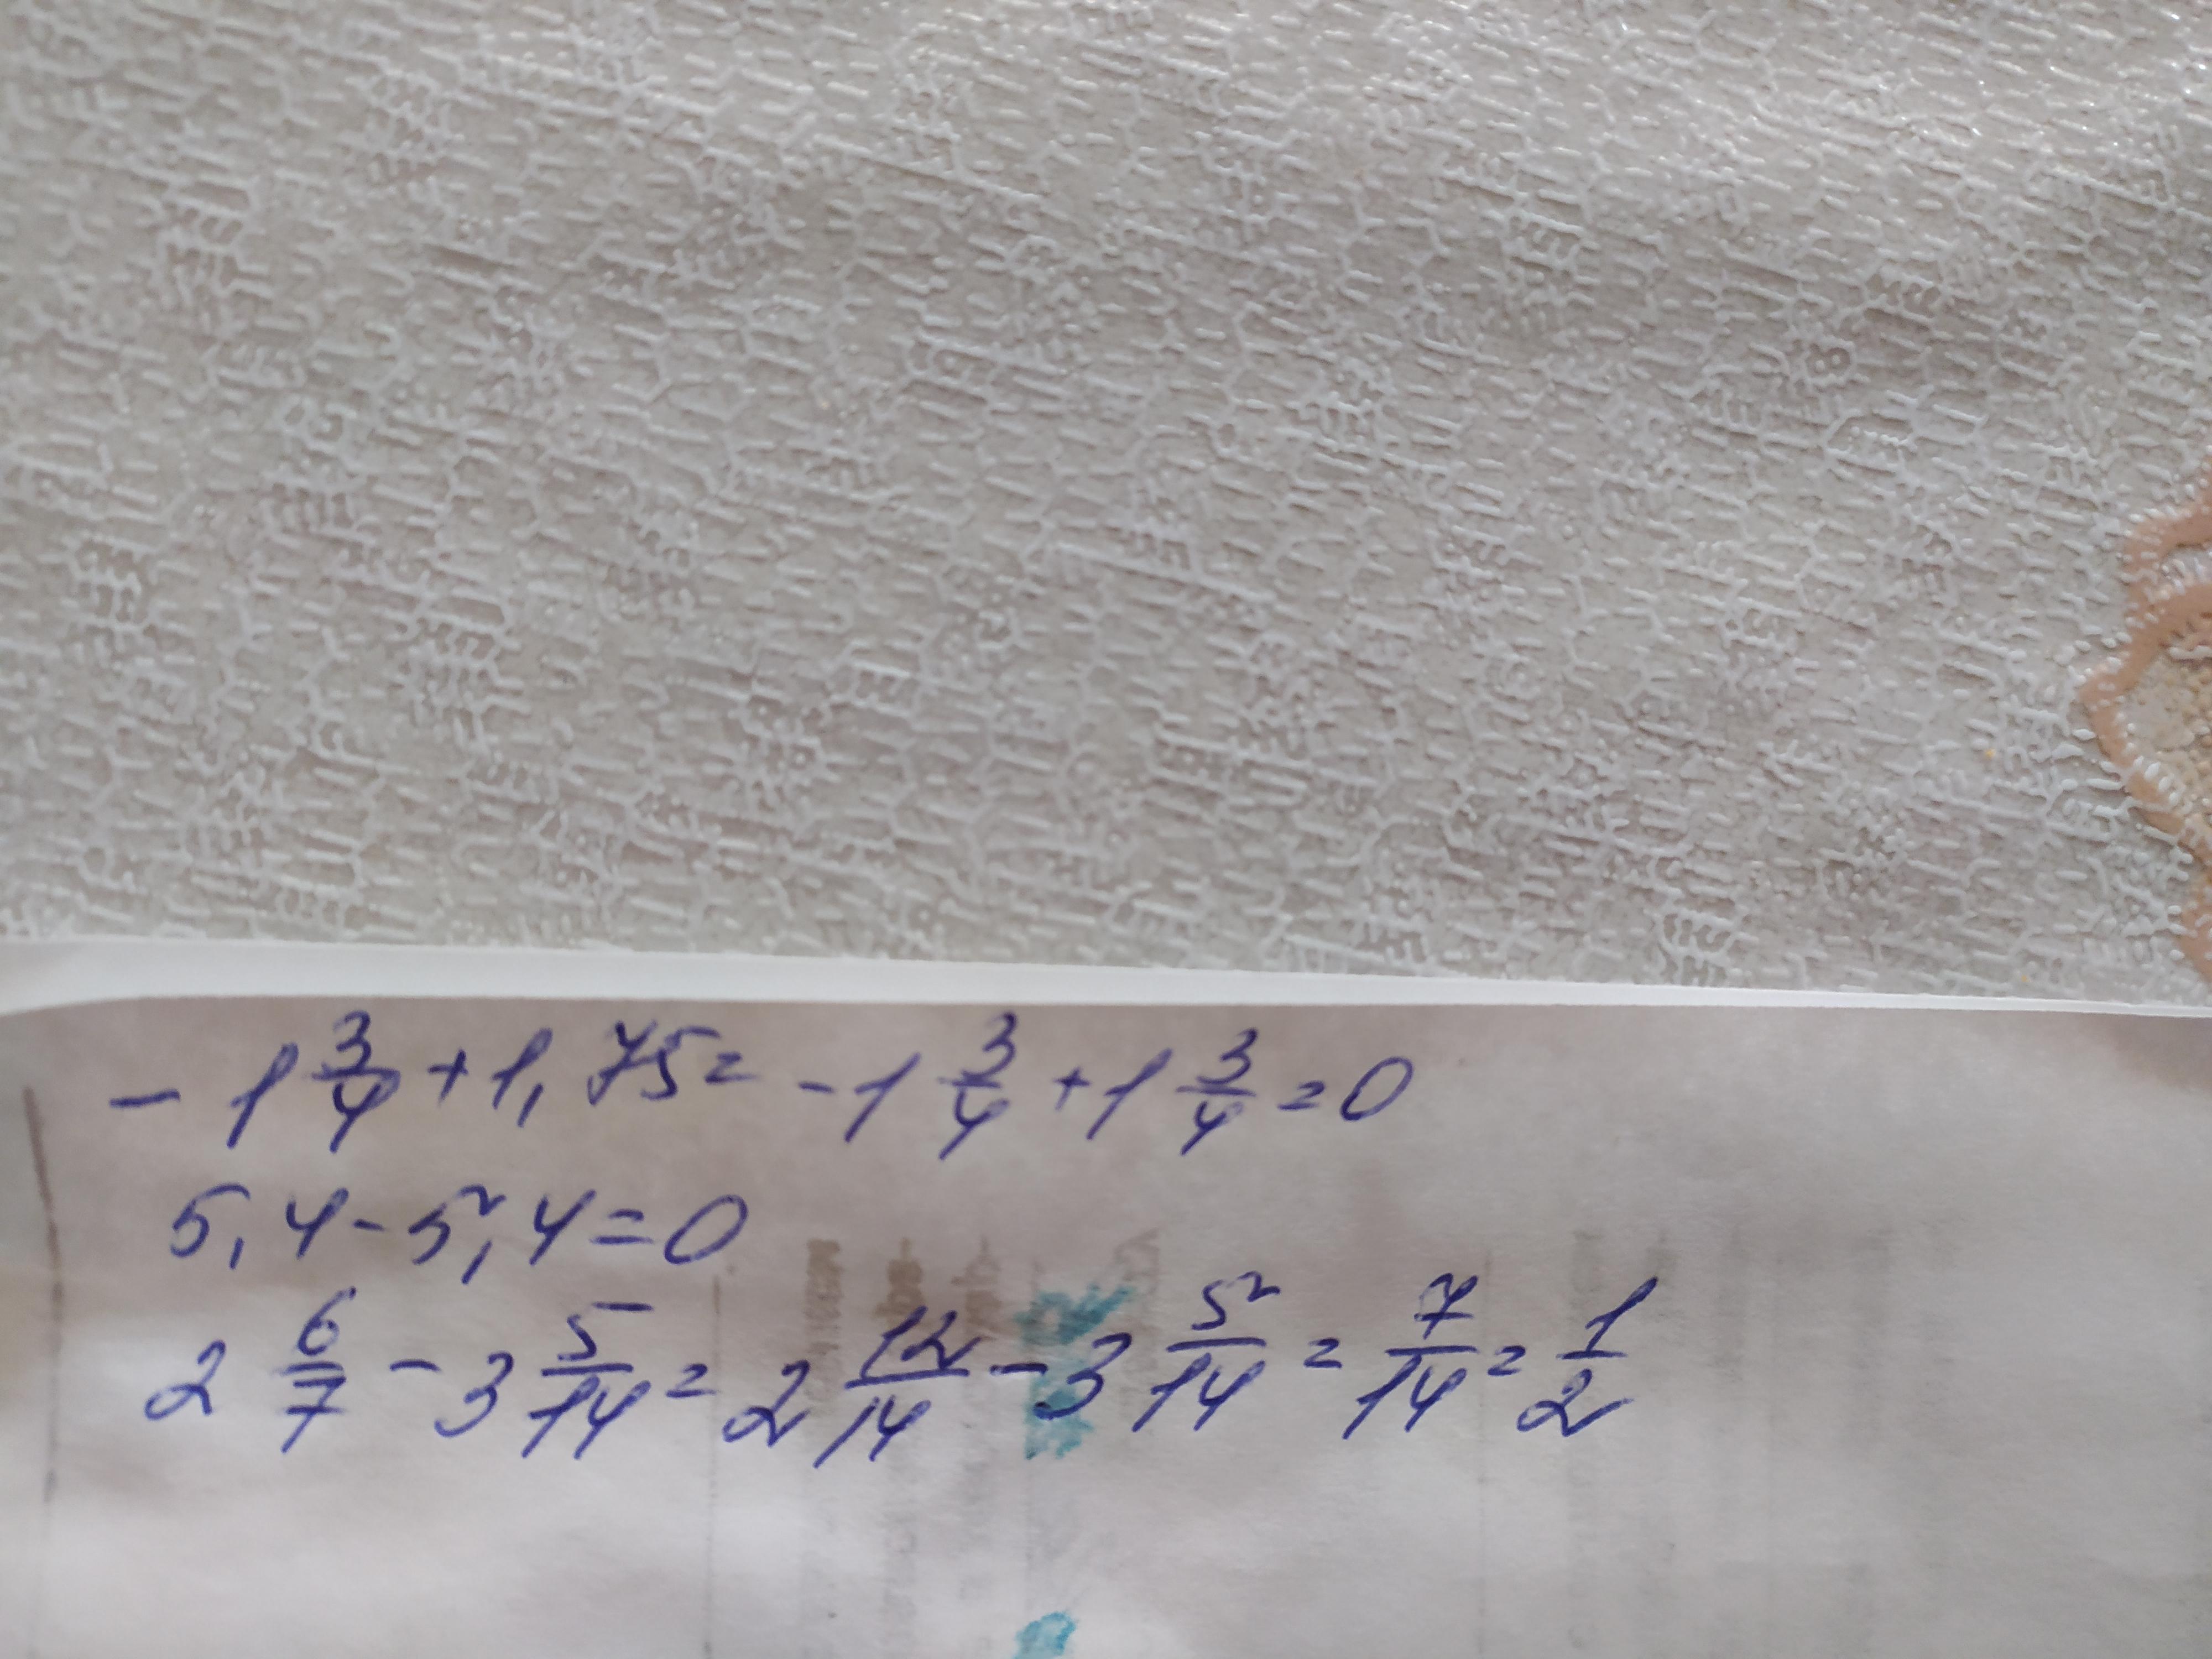 - 1 3/4 + 1,75 = - 1 3/4 + 1 3/4 = 0
5,4 - 5,4 = 0
2 6/7 - 3 5/14 = 2 12/14 - 3 5/14 = 7/14 = 1/2